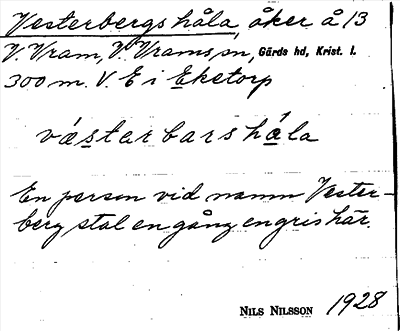 Vesterbergshåla, åker å 13
V. Vram, V. Vrams sn, Gärds hd, Krist. l.
300 m. V. E i Eketorp
västarbarshåla
En person vid namn Vester-
berg stal en gång en gris här.
NILS NILSSON 1928